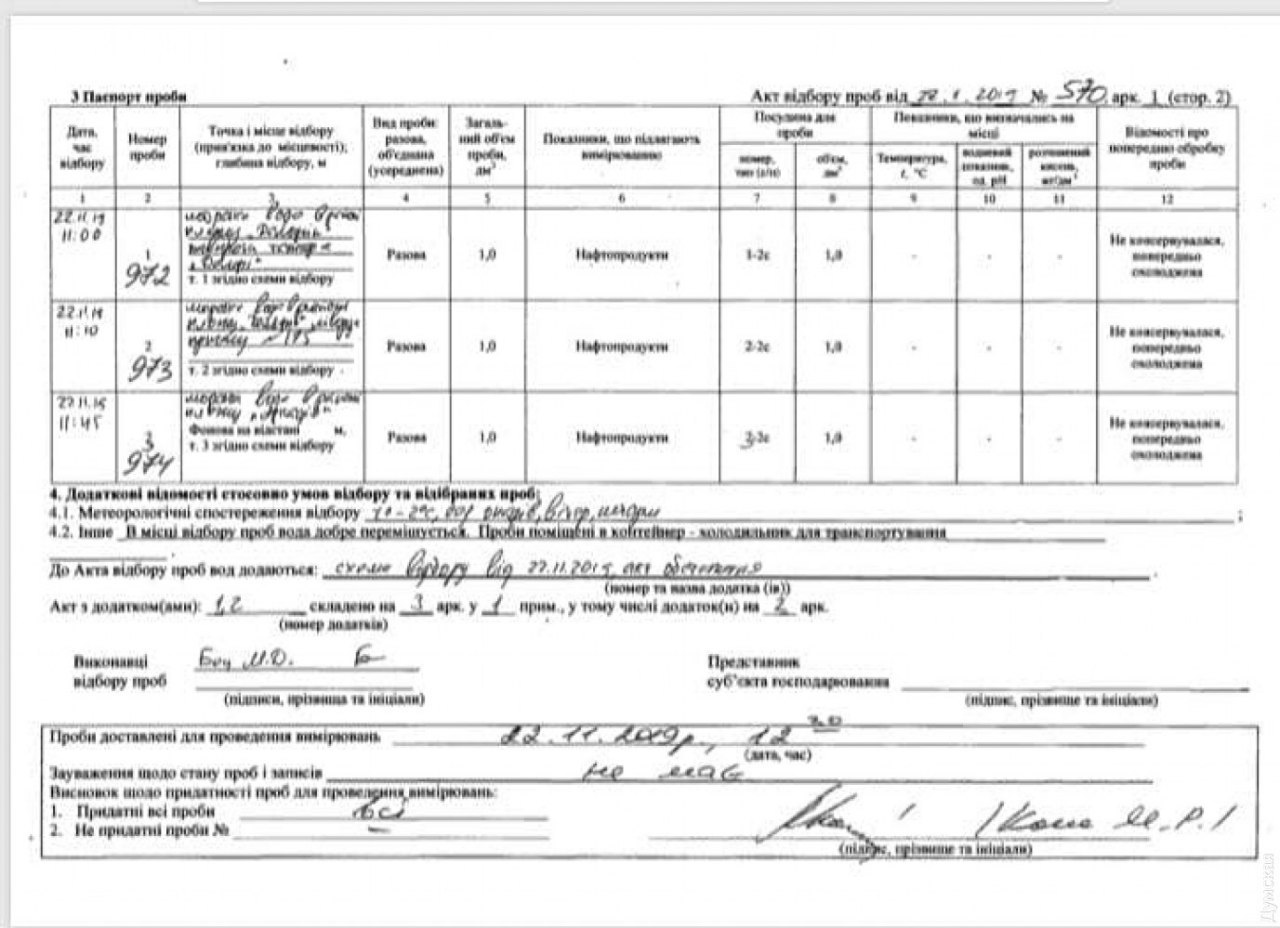 3 Паспорт проби
Акт відбору проб від 22.11.2019 № 570 арк. 1 (стор. 2)
Дата, час відбору
Номер проби
Точка і місце відбору (прив'язка до місцевості); глибина відбору, м
Вид проби: разова, об'єднана (усереднена)
Загаль- ний об'єм проби, дм³
Показники, що підлягають вимірюванню
Посудина для проби
номер, тип (с/п)
об'єм, дм³
Показники, що визначались на місці
Температура, t, °С
водневий показник, од. рН
розчинений кисень, мг/дм³
Відомості про попередню обробку проби
1 2 3 4 5 6 7 8 9 10 11 12
22.11.19
11:00
1
972
морська вода в районі
пляжу „Дельфін"
навпроти
т. 1 згідно схеми відбору
Разова
1,0
Нафтопродукти
1-2с
1,0
-
-
-
Не консервувалася, попередньо охолоджена
22.11.19
11:10
2
973
морська вода в районі
пляжу
причалу
т. 2 згідно схеми відбору
Разова
1,0
Нафтопродукти
2-2с
1,0
-
-
-
Не консервувалася, попередньо охолоджена
22.11.19
11:45
3
974
морська вода в районі
пляжу „Аркадія"
Фонова на відстані м,
т. 3 згідно схеми відбору
Разова
1,0
Нафтопродукти
3-2с
1,0
-
-
-
Не консервувалася, попередньо охолоджена
4. Додаткові відомості стосовно умов відбору та відібраних проб:
4.1. Метеорологічні спостереження відбору без опадів, вітер, ;
4.2. Інше В місці відбору проб вода добре перемішується. Проби поміщені в контейнер - холодильник для транспортування
До Акта відбору проб вод додаються: схема відбору від 22.11.2019, акт обстеження
(номер та назва додатка (ів))
Акт з додатком(ами): 1,2 складено на 3 арк. у 1 прим., у тому числі додаток(и) на 2 арк.
(номер додатків)
Виконавці
відбору проб
М.О.
(підписи, прізвища та ініціали)
Представник
суб'єкта господарювання
(підпис, прізвище та ініціали)
Проби доставлені для проведення вимірювань 22.11.2019р., 12 20
(дата, час)
Зауваження щодо стану проб і записів не має
Висновок щодо придатності проб для проведення вимірювань:
1. Придатні всі проби всі
2. Не придатні проби № —
(підпис, прізвище та ініціали)
Думская